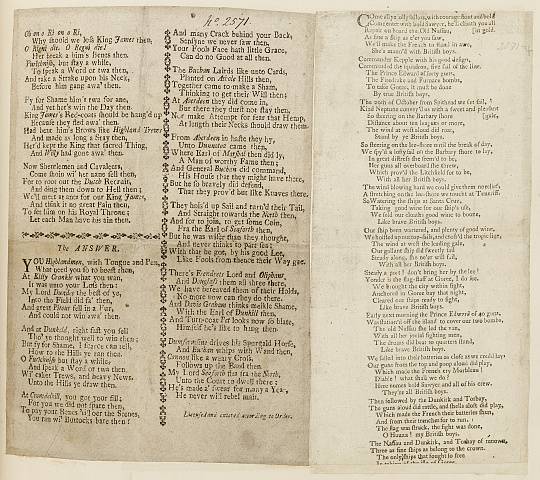 No. 2571.
Oh on o Ri on o Ri,
Why should we loss King James then,
O Rigni die, O Regni die!
Her break a him's Benes then.
Fuichinish, but stay a while,
To speak a Word or twa then,
And take a Strake upon his Neck,
Before him gang awa' then.
Fy for Shame him's twa for ane,
And yet her's win the Day then.
King James's Red-coats should be hang'd up
Because they fled awa' then.
Had bent him's Brows like Highland Trews
And made as long a Stay then,
He'd kept the King that sacred Thing,
And Willy had gone awa' then.
Now Sheerlemen and Cavaleers,
Come shoin wi' her nane sell then,
For to root out the Dutch Recruits,
And ding them down to Hell then:
We'll meet yt ance for our King James,
And think it no great Pain then,
To set him on his Royal Throne;
Let each Man have his ain then.
The ANSWER.
YOU Highlandmen, with Tongue and Pen,
What need you so to boast than,
At Killy Crankie what you wan,
It was unto your Loss then:
My Lord Dundee the best of ye,
Into the Field did fa' then,
And great Pitcur fell in a Fur,
And could not win awa' then.
And at Dunkeld, right fast you fell
Tho' ye thought well to win then;
But fy for Shame, I scarce can tell,
How to the Hills ye ran then.
O Fuichinish but stay a while,
And speak a Word or twa then,
Wi' eaker Trews, and heavy News,
Unto the Hills ye draw then.
At Cromedill, you got your fill;
For you we did not spare then,
To pay your Benes 'till out the Stanes,
You ran wi' Buttocks bare then!
And many Crack behind your Back,
Sendsyne we never saw then.
Your Fools Face hath little Grace,
Can do no Good at all then.
The Bachan Lairds like nine Cards,
Painted on Abode Hills then,
Together came to make a Sham,
Thinking to get their Will then;
At Aberdeen they did come in,
But there they durst not stay then,
Nor make Attempt for fear that Hemp,
At length their Necks should draw them.
From Aberdeen in haste they hy,
Unto Dunottea came then,
Where Earl of Marshal then did ly,
A Man of worthy Fame then;
And General Bachan did command,
His House that they might have there,
But he so bravely did defend,
That they prov'd but like Knaves there.
They hois'd up Sail and turn'd their Tail,
And Straight towards the North then,
And for to join, to get some Coin,
Fra the Earl of Seaforth then,
But he was wiser than they thought,
And never thinks to part sie;
With that he got, by his good Lee,
Like Fools from thence their Way gae.
There's Frendreit Lord and Oliphant,
And Dunglass then all three there,
We have bereaved them of their Holds,
No more now can they do there.
And Devils Graham thinks meikle Shame,
With the Earl of Dunkell then,
And Turn-coat F—e looks now so blate,
Himself he's like to hang then.
Dumfermline drives his Spurgald Horse,
And Bachan whips with Wand then,
Cannon like a weary Cross,
Follows up the Band then.
My Lord Seaforth sits in the North,
Unto the Court to dwell there;
He's made a Sweat for many a Year,
He never will rebel mair.
Licensed and entered according to Order.
COme all you jolly sailors, with courage stout and bold
Come enter with bold Sawyer, he'll cloath you all
Repair on board the Old Nassau, [in gold.
As fine a ship as e'er you saw,
We'll make the French to stand in awe,
She's mann'd with British boys.
Commander Kepple with his good design,
Commanded the squadron, five sail of the line.
The Prince Edward of forty guns,
The Firedrake and Furnace bombs,
To take Goree, it must be done
By true British boys.
The 20th of October from Spithead we set sail,
Kind Neptune convey'd us with a sweet and pleasant
So steering on the Barbary shore [gale,
Distance about ten leagues or more,
The wind at west aloud did roar,
Stand by ye British boys.
So steering on the lee-shore until the break of day,
We spy'd a lofty sail on the Barbary shore to lay,
In great distress she seem'd to be,
Her guns all overboard threw she,
Which prov'd the Litchfield for to be,
With all her British boys.
The wind blowing hard we could give them no relief,
A stretching on the lee-shore we touch'd at Teneriffe.
So Watering the ships at Santa Cruz,
Taking good wine for our ship's use,
We sold our cloaths good wine to booze,
Like brave British boys.
Our ship being watered, and plenty of good wine,
We hoisted up our top-sails, and cross'd the tropic line,
The wind at west the leading gale,
Our gallant ship did sweetly sail
Steady along, she ne'er will fail,
With all her British boys.
Steady a port! don't bring her by the lee!
Yonder is the flag-staff at Goree, I do see.
We brought the city within sight,
Anchored in Goree bay that night,
Cleared our ships ready to fight,
Like brave British boys.
Early next morning the Prince Edward of 40 guns,
Was station'd off the island to cover our two bombs,
The old Nassau she led the van,
With all her jovial fighting men,
The drums did beat to quarters stand,
Like brave British boys.
We sailed into their batteries as close as we could lay:
Our guns from the top and poop aloud did play,
Which made the French cry Morbleau!
Diable! what shall we do?
Here comes bold Sawyer and all of his crew,
They're all British boys.
Then followed by the Dunkirk and Torbay,
The guns aloud did rattle, and shells aloft did play,
Which made the French their batteries shun,
And from their trenches for to run.
The flag was struck, the fight was done,
O Huzza! my British boys.
The Nassau and Dunkirk, and Torbay of renown,
Three as fine ships as belong to the crown.
The only ships that fought so free